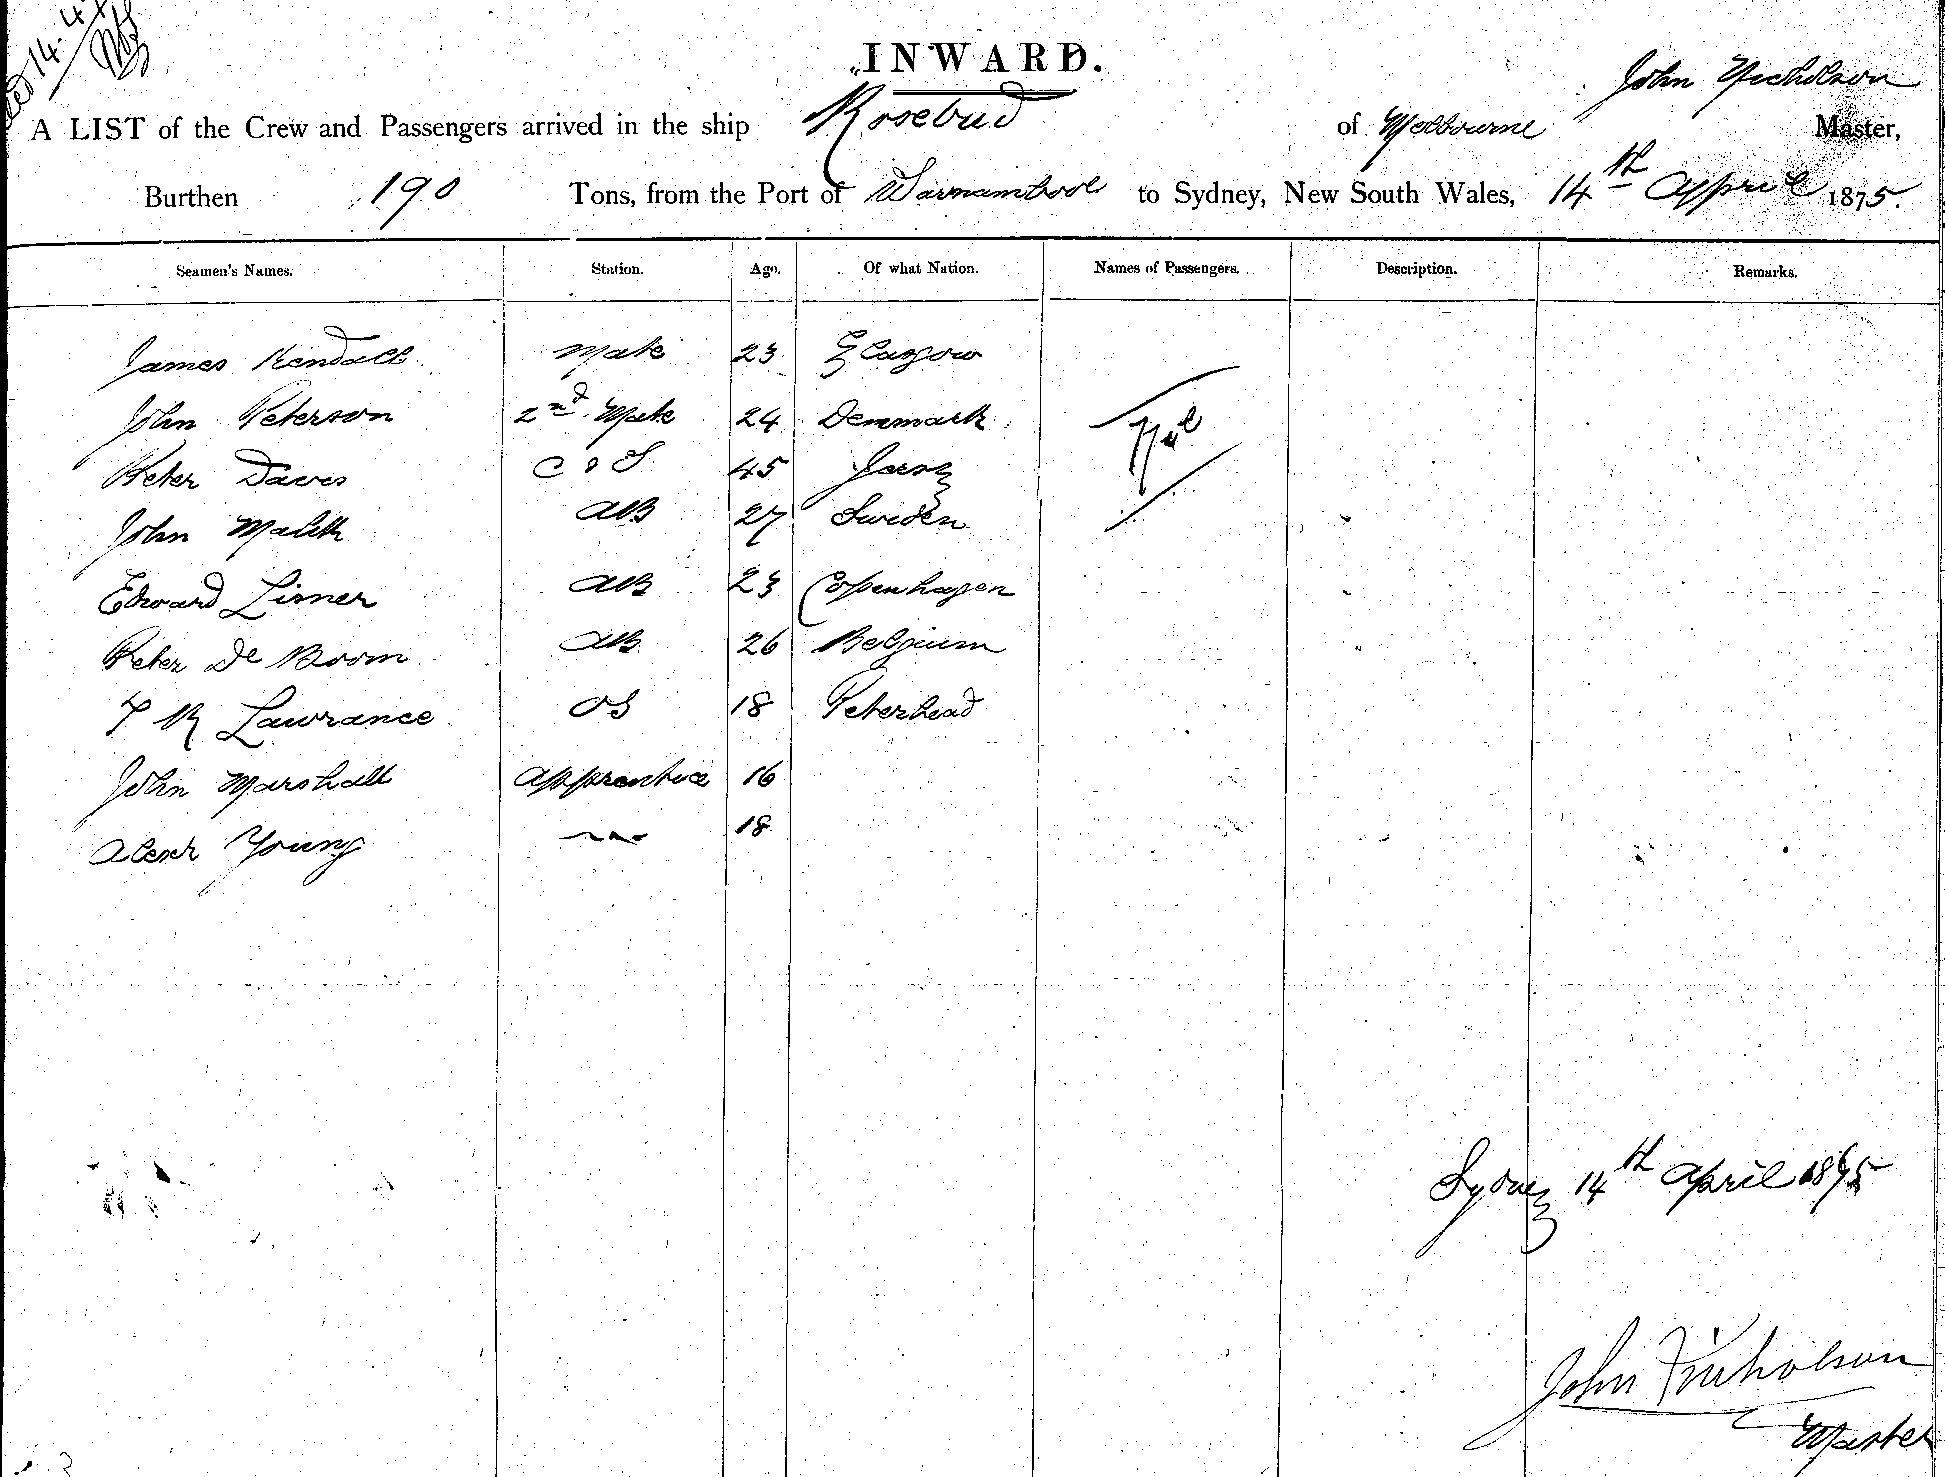 INWARD.
John Nicholson
A LIST of the Crew and Passengers arrived in the ship Rosebud of Melbourne Master,
Burthen 190 Tons, from the Port of Warnambool to Sydney, New South Wales, 14th April 1875.
Seamen's Names. Station. Age. Of what Nation. Names of Passengers. Description. Remarks.
James Kendall Mate 23 Glasgow
John Peterson 2nd Mate 24 Denmark Nil
Peter Daves C & S 45 Jersy
John AB 27 Sweden
Edward Lisner AB 23 Copenhagen
Peter De Boom AB 26 Belgium
R Lawrance OS 18 Peterhead
John Marshall apprentice 16
Alexr Young 18
Sydney 14th April 1875
John Nicholson
Master